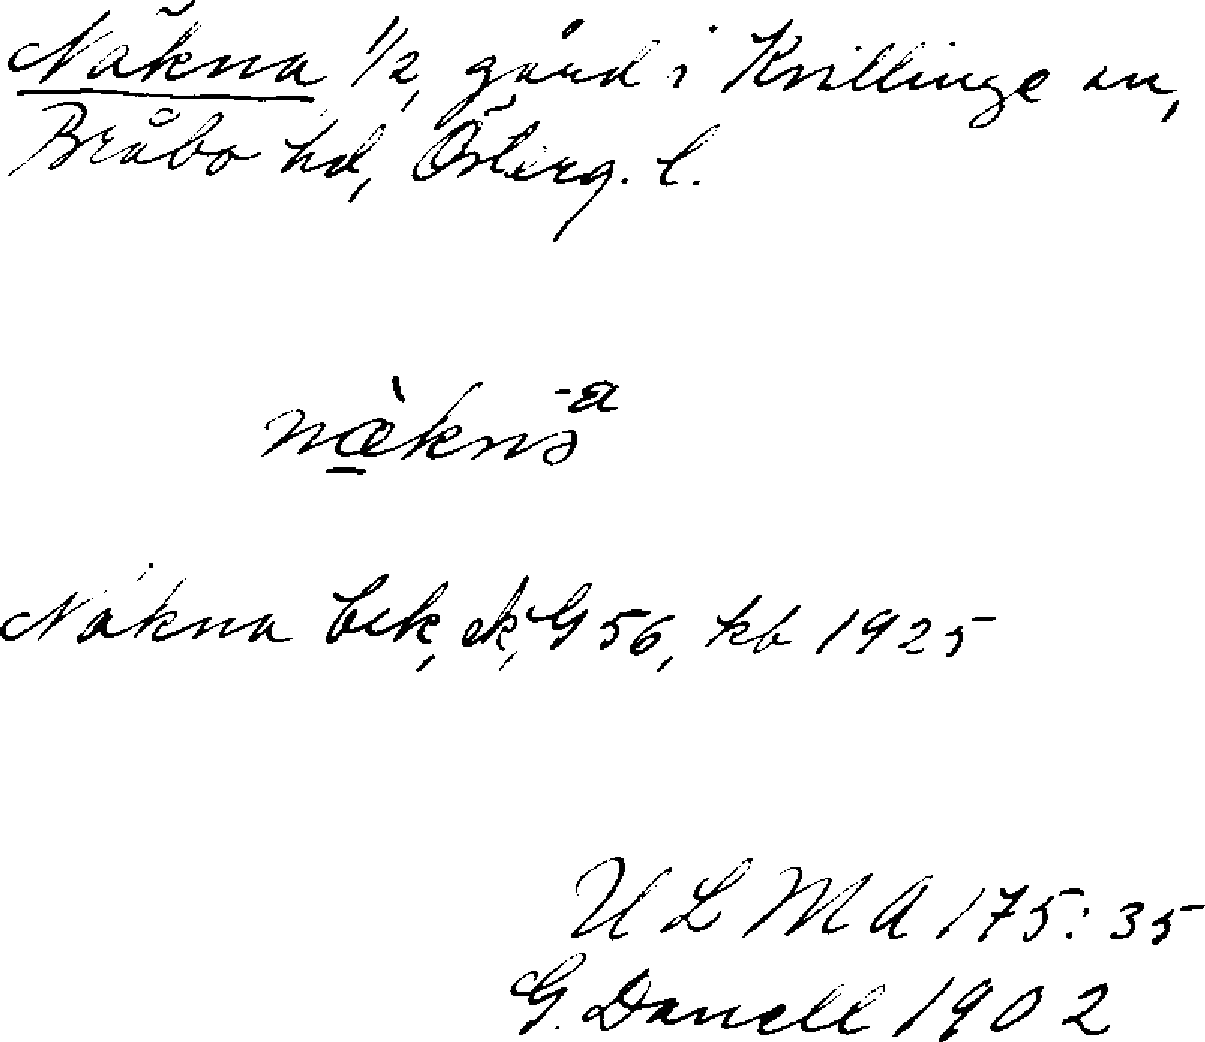 Näkna 1/2, gård i Kvillinge sn,
Bråbo hd, Österg. l.
næ̀knə -a
Näkna bek, ek, G 56, kb 1925
ULMA 175:35
G. Danell 1902